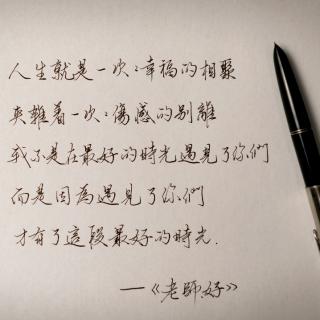 人生就是一次次幸福的相聚
夾雜着一次次傷感的別離
我不是在最好的時光遇見了你們
而是因為遇見了你們
才有了這段最好的時光.
—《老師.好》